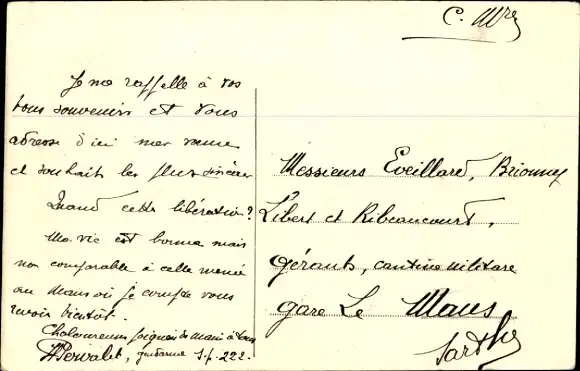 C. Mre
Je me rappelle à vos
bons souvenirs et vous
adresse d'ici mes vœux
et souhaits les plus sincères
Quand cette libération?
Ma vie est bonne mais
non comparable à celle menée
au Mans où je compte vous
revoir bientôt.
Chaleureuses poignées de main à tous
S.P. 222.
Messieurs Eveillard, Brionney
Libert et Ribeaucourt,
gérants, cantine militare
gare Le Mans
Sarthe